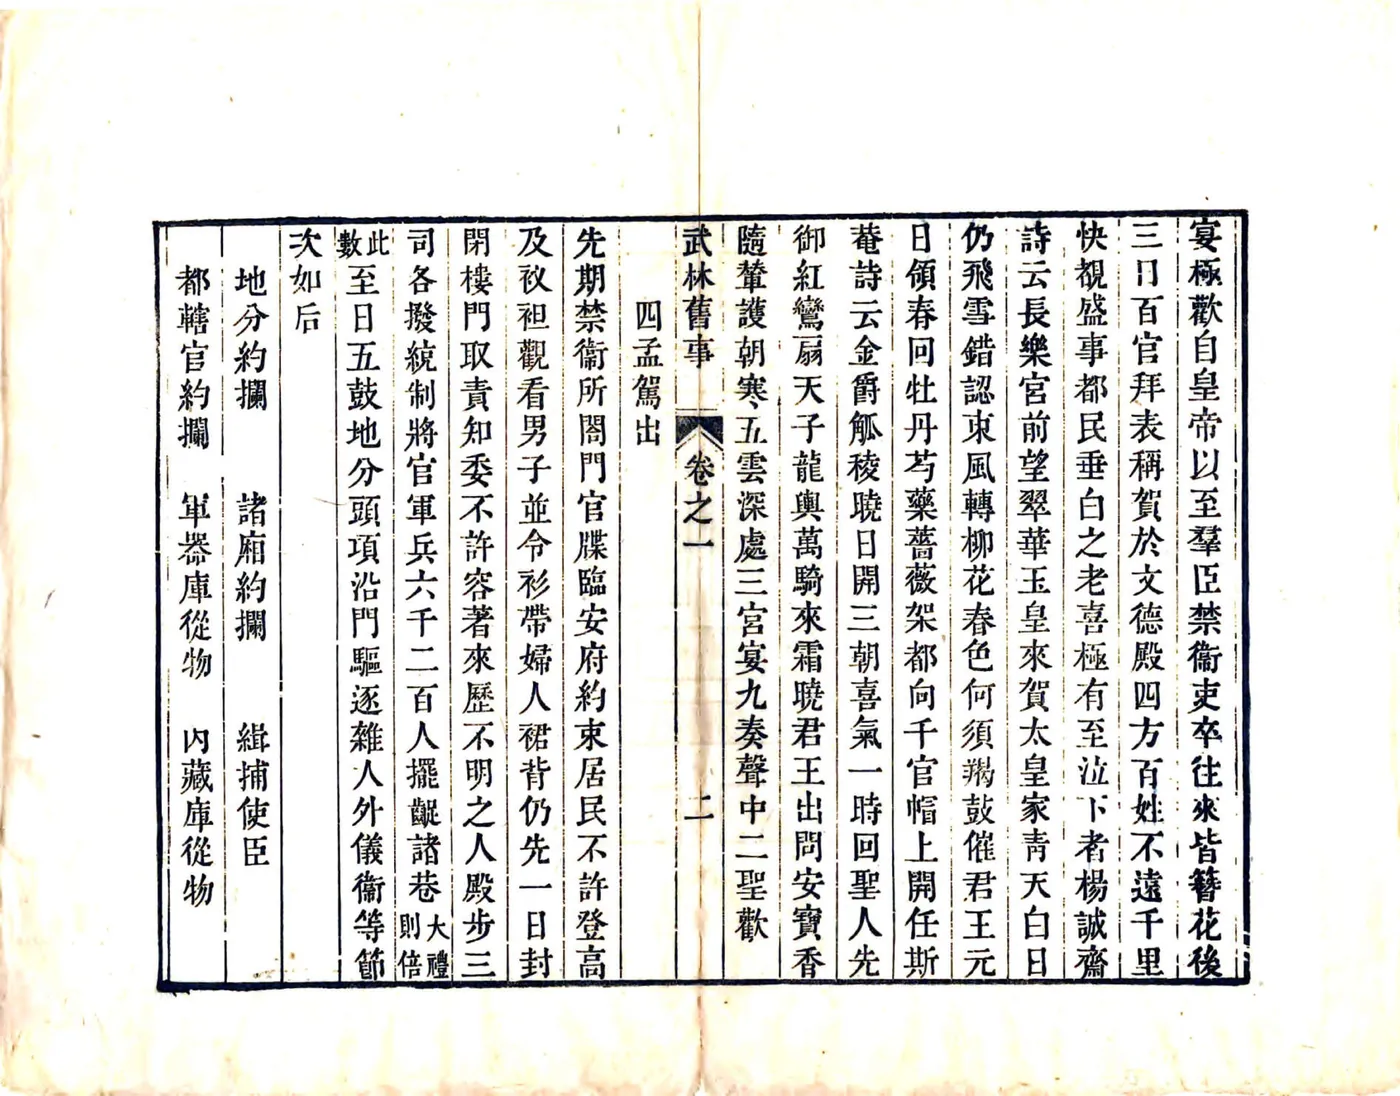 宴極歡自皇帝以至羣臣禁衞吏卒往來皆簪花後
三日百官拜表稱賀於文德殿四方百姓不遠千里
快覩盛事都民垂白之老喜極有至泣下者楊誠齋
詩云長樂宮前望翠華玉皇來賀太皇家靑天白日
仍飛雪錯認東風轉柳花春色何須羯鼓催君王元
日領春回牡丹芍藥薔薇架都向千官帽上開任斯
菴詩云金爵觚稜曉日開三朝喜氣一時回聖人先
御紅鸞扇天子龍輿萬騎來霜曉君王出問安寶香
隨輦護朝寒五雲深處三宮宴九奏聲中二聖歡
武林舊事 卷之一 二
四孟駕出
先期禁衞所閤門官牒臨安府約束居民不許登高
及衩袒觀看男子並令衫帶婦人裙背仍先一日封
閉樓門取責知委不許容著來歷不明之人殿步三
司各撥統制將官軍兵六千二百人擺齪諸巷大禮則倍
此數至日五鼓地分頭項沿門驅逐雜人外儀衞等節
次如后
地分約攔 諸廂約攔 緝捕使臣
都轄官約攔 軍器庫從物 內藏庫從物